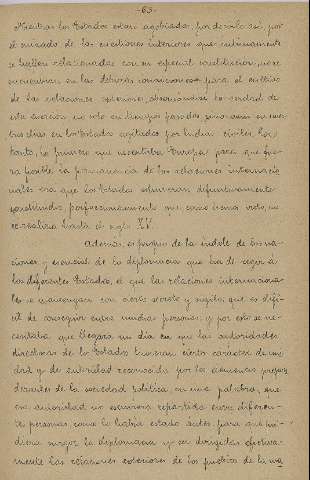 - 63 -
Mientras los Estados están agobiados por decirlo así, por
el cuidado de las cuestiones interiores que íntimamente
se hallan relacionadas con su especial constitución, no se
encuentran en las debidas condiciones para el cultivo
de las relaciones exteriores, observándose la verdad de
esta aserción no solo en tiempos pasados, sino aún en nues-
tros días en los Estados agitados por luchas civiles. Por
tanto, lo primero que necesitaba Europa para que fue-
ra posible la permanencia de las relaciones internacio-
nales era que los Estados estuvieran definitivamente
constituidos, perfeccionamiento que como hemos visto, no
se realiza hasta el siglo XV.
Además, es propio de la índole de las na-
ciones y esencial de la diplomacia que ha de regir a
los diferentes Estados, el que las relaciones internaciona-
les se mantengan con cierto secreto y sigilo, que es difí-
cil de conseguir entre muchas personas; y por esto se ne-
cesitaba que llegara un día en que las autoridades
directivas de los Estados tuvieran cierto carácter de uni-
dad y de autoridad reconocida por los elementos prepon-
derantes de la sociedad política, en una palabra, que
esa autoridad no estuviera repartida entre diferen-
tes personas como lo había estado antes para que pu-
diera surgir la diplomacia y ser dirigidas efectiva-
mente las relaciones exteriores de los pueblos de la ma